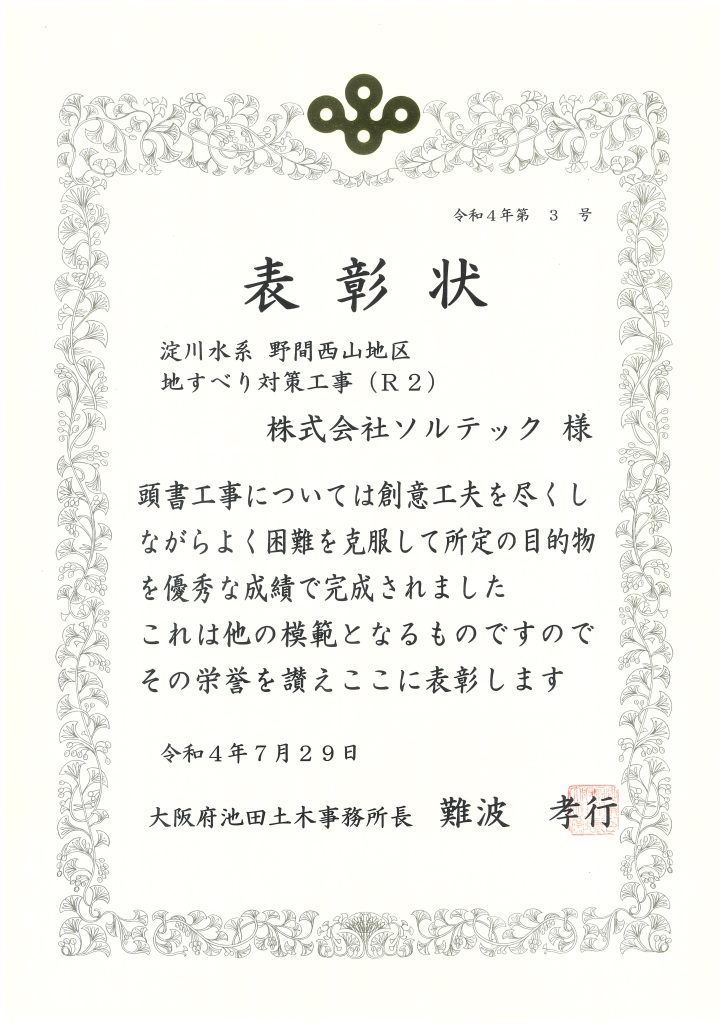 令和４年第　３　号
表彰状
淀川水系 野間西山地区
地すべり対策工事（Ｒ２）
株式会社ソルテック 様
頭書工事については創意工夫を尽くし
ながらよく困難を克服して所定の目的物
を優秀な成績で完成されました
これは他の模範となるものですので
その栄誉を讃えここに表彰します
令和４年７月２９日
大阪府池田土木事務所長　難波　孝行